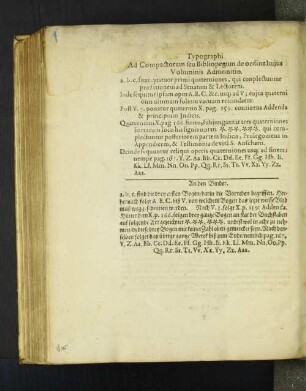 Typographi
Ad Compactorem seu Bibliopegum de ordine hujus
Voluminis Admonitio.
a. b. c. sunt quatuor primi quaterniones, qui complectuntur
præfationem ad Senatum & Lectorem.
Inde sequitur ipsum opus A. B. C. &c. usq; ad V; cujus quaterni
onis ultimum folium vacuum
Post V. 3. ponatur quaternio X. pag. 159. continens Addenda
& principium Indicis.
Quaternioni X. pag. 166. finito subjungantur tres quaterniones
sequentes
plectuntur posteriorem partem Indicis; Prolegomena in
Appendicem, & Testimonia de vitâ S. Anscharii.
Deinde sequuntur reliqui operis quaterniones usq; ad finem:
nempe pag. 167. Y. Z. Aa. Bb. Cc. Dd. Ee. Ff. Gg. Hh. Ii.
Kk. Ll. Mm. Nn. Oo. Pp. Qq. Rr. Ss. Tt. Vv. Xx. Yy. Zz.
Aaa.
An den Binder.
a. b. c. sind die drey ersten Bogen darin die Vorreden begriffen. Her-
nach folgt A. B. C. biß V. von welchem Bogen das letzte weisse Blad
muß weggeschnitten werden. Nach V. 3. folgt X. p. 159. Addenda.
Hinter dem X. p. 166. folgen drey gantze Bogen an stat der Buchstaben
auf folgende Art gezeichnet
men daß diese drey Bogen mit keiner Zahl oben gemercket seyn. Nach den-
selben folget das übrige gantze Werck biß zum Ende nemlich pag. 167.
Y. Z. Aa. Bb. Cc. Dd. Ee. Ff. Gg. Hh. Ii. Kk. Ll. Mm. Nn. Oo. Pp.
Qq. Rr. Ss. Tt. Vv. Xx. Yy. Zz. Aaa.